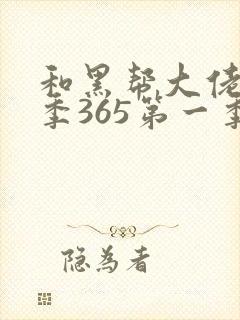 和黑帮大佬
季365第一季
隐为者